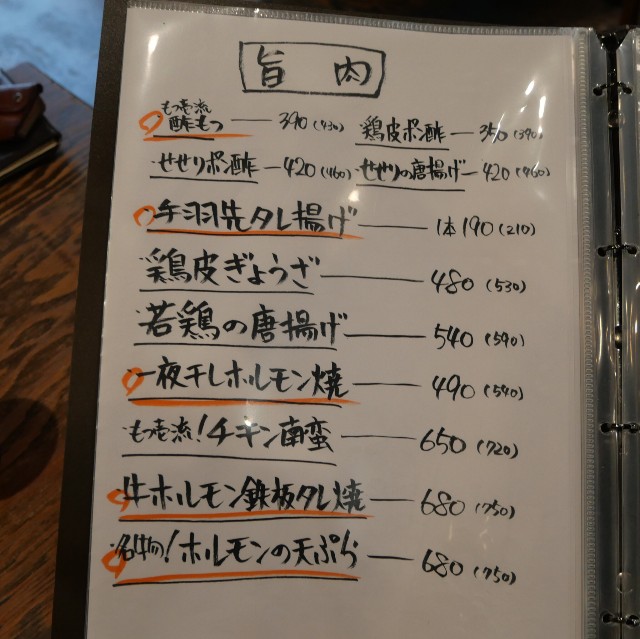 旨肉
もつ壱流
酢もつ 390(430) 鶏皮ポン酢 350(390)
せせりポン酢 420(460) せせりの唐揚げ 420(460)
手羽先タレ揚げ 1本190(210)
鶏皮ぎょうざ 480(530)
若鶏の唐揚げ 540(590)
一夜干しホルモン焼 490(540)
もつ壱流!チキン南蛮 650(720)
牛ホルモン鉄板タレ焼 680(750)
名物!ホルモンの天ぷら 680(750)